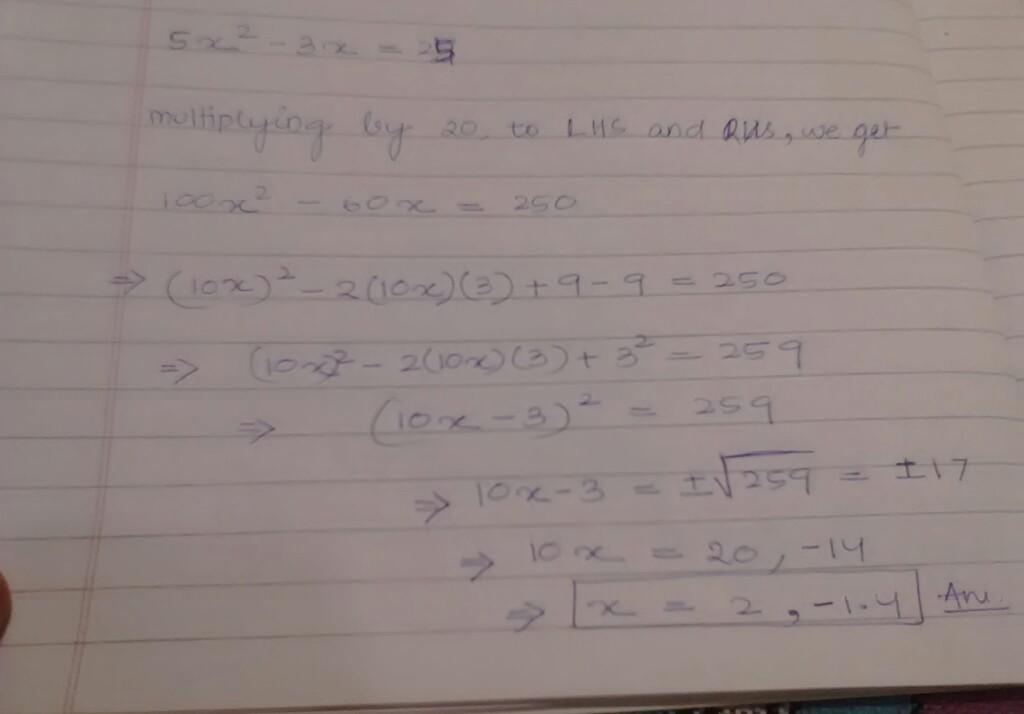 5x² - 3x = 25
multiplying by 20 to LHS and RHS, we get
100x² - 60x = 250
⇒ (10x)² - 2(10x)(3) + 9 - 9 = 250
⇒ (10x)² - 2(10x)(3) + 3² = 259
⇒ (10x - 3)² = 259
⇒ 10x - 3 = ±√259 = ±17
⇒ 10x = 20, -14
⇒ x = 2, -1.4 Ans.